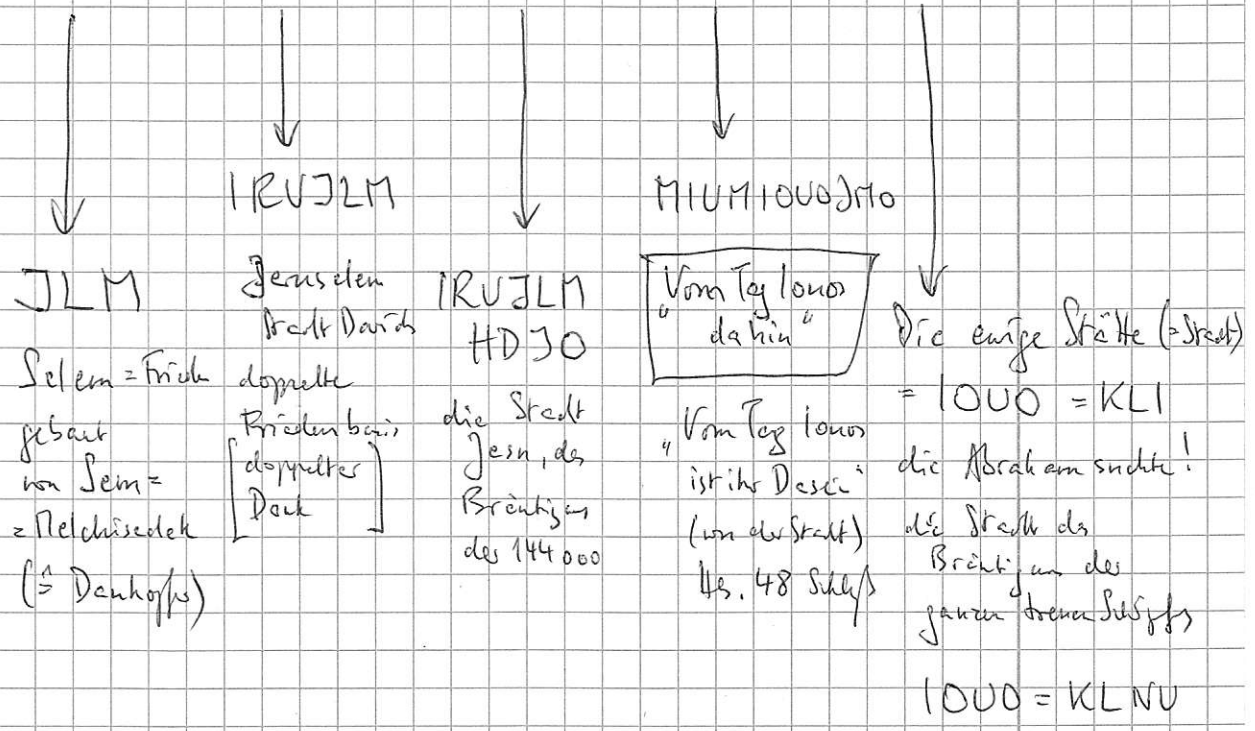 JLM
Salem = Friede
gebaut
von Sem =
= Melchisedek
(≙ Dankopfer)
IRUJLM
Jerusalem
Stadt Davids
doppelte
Friedensbasis
[doppelter
Dank]
IRUJLM
HDJO
die Stadt
Jesu, des
Bräutigams
der 144000
MIUMIOUOJMO
"Vom Tag Iouos
dahin"
"Vom Tag Iouos
ist ihr Dasein"
(von der Stadt)
Hs. 48 Schluß
Die ewige Stätte (=Stadt)
= IOUO = KLI
die Abraham suchte!
die Stadt des
Bräutigams der
ganzen treuen Schöpfg
IOUO = KLNU